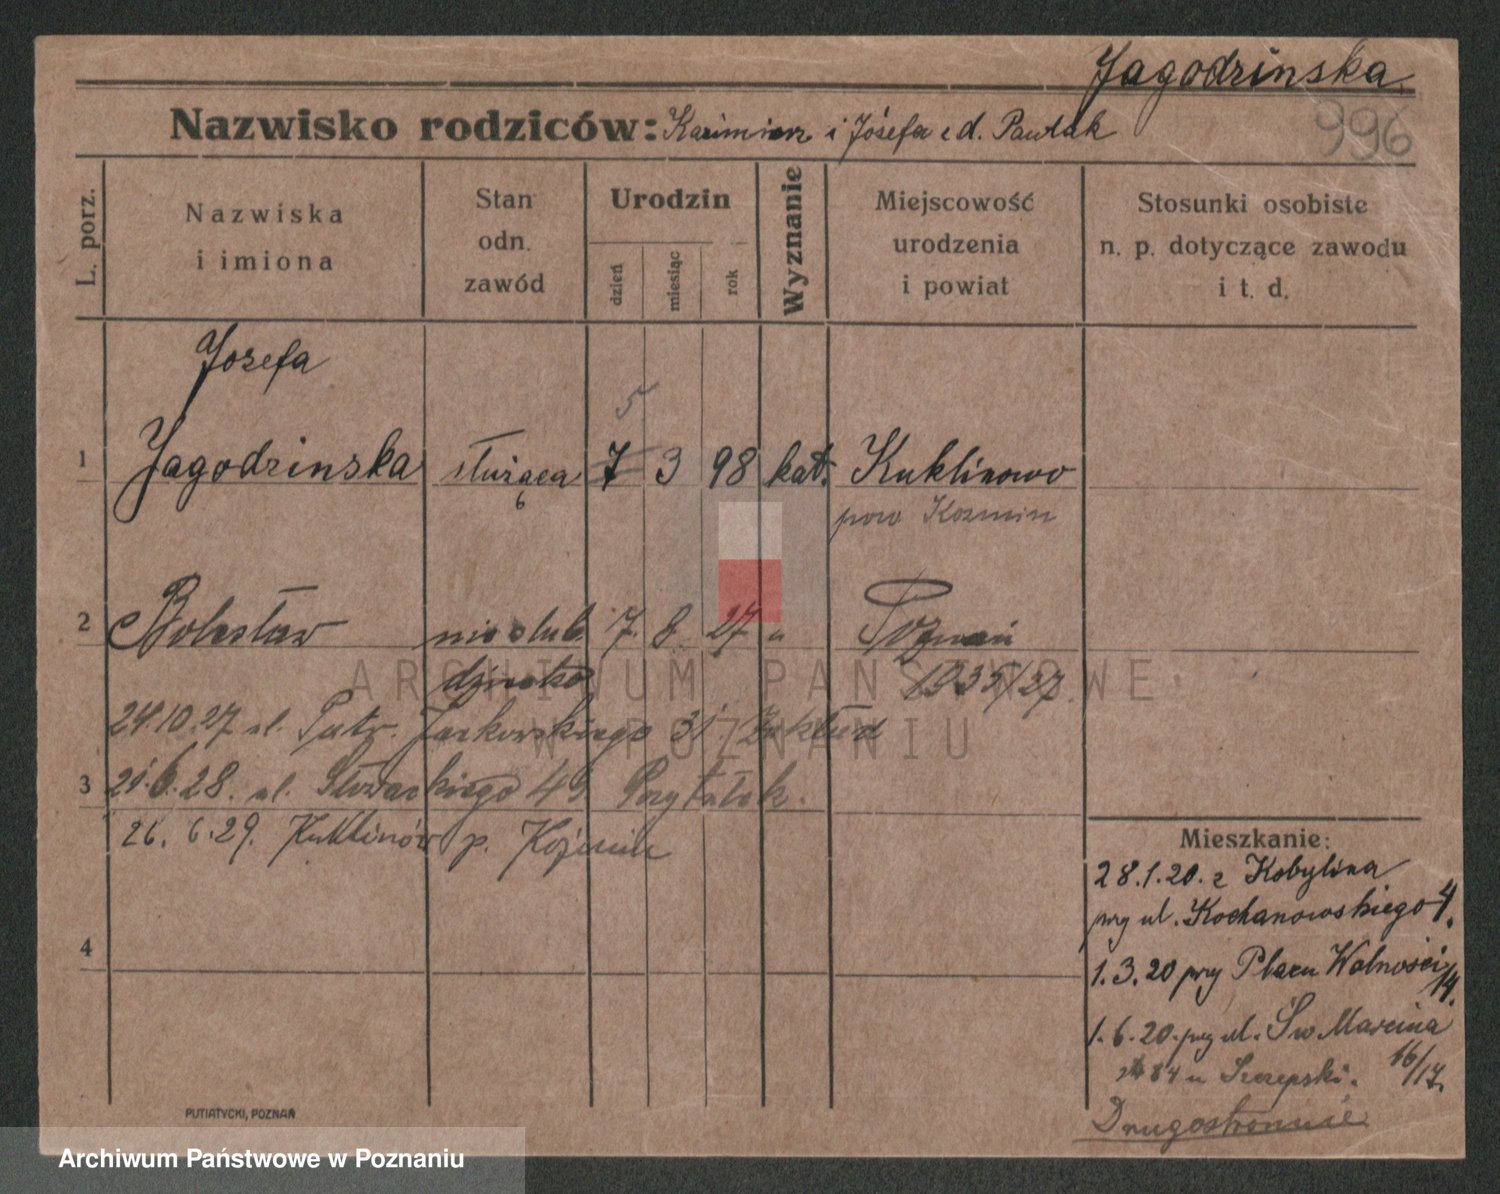 Jagodzinska
996
Nazwisko rodziców: Kazimierz i Józefa z d. Pawlak
L. porz.
Nazwiska i imiona
Stan odn. zawód
Urodzin
dzień
miesiąc
rok
Wyznanie
Miejscowość urodzenia i powiat
Stosunki osobiste n. p. dotyczące zawodu i t. d.
Jozefa
5
1 Jagodzinska służąca 7 3 98 kat. Kuklinowo
pow Kozmin
2 Bolesław nieślub. 7. 8 27 " Poznań
dziecko 1935/27.
24.10.27 ul. Jackowskiego 31. Zakład
3 21.6.28. ul. 49 Przytułek.
26. 6.29. Kuklinów p. Koźmin
4
Mieszkanie:
28.1.20. z Kobylina
przy ul. Kochanowskiego 4.
1.3.20 przy Placu Wolności 14.
1.6.20. przy ul. Św Marcina 16/17.
u Szczepski.
Drugostronnie
PUTIATYCKI, POZNAŃ
ARCHIWUM PAŃSTWOWE
W POZNANIU
Archiwum Państwowe w Poznaniu